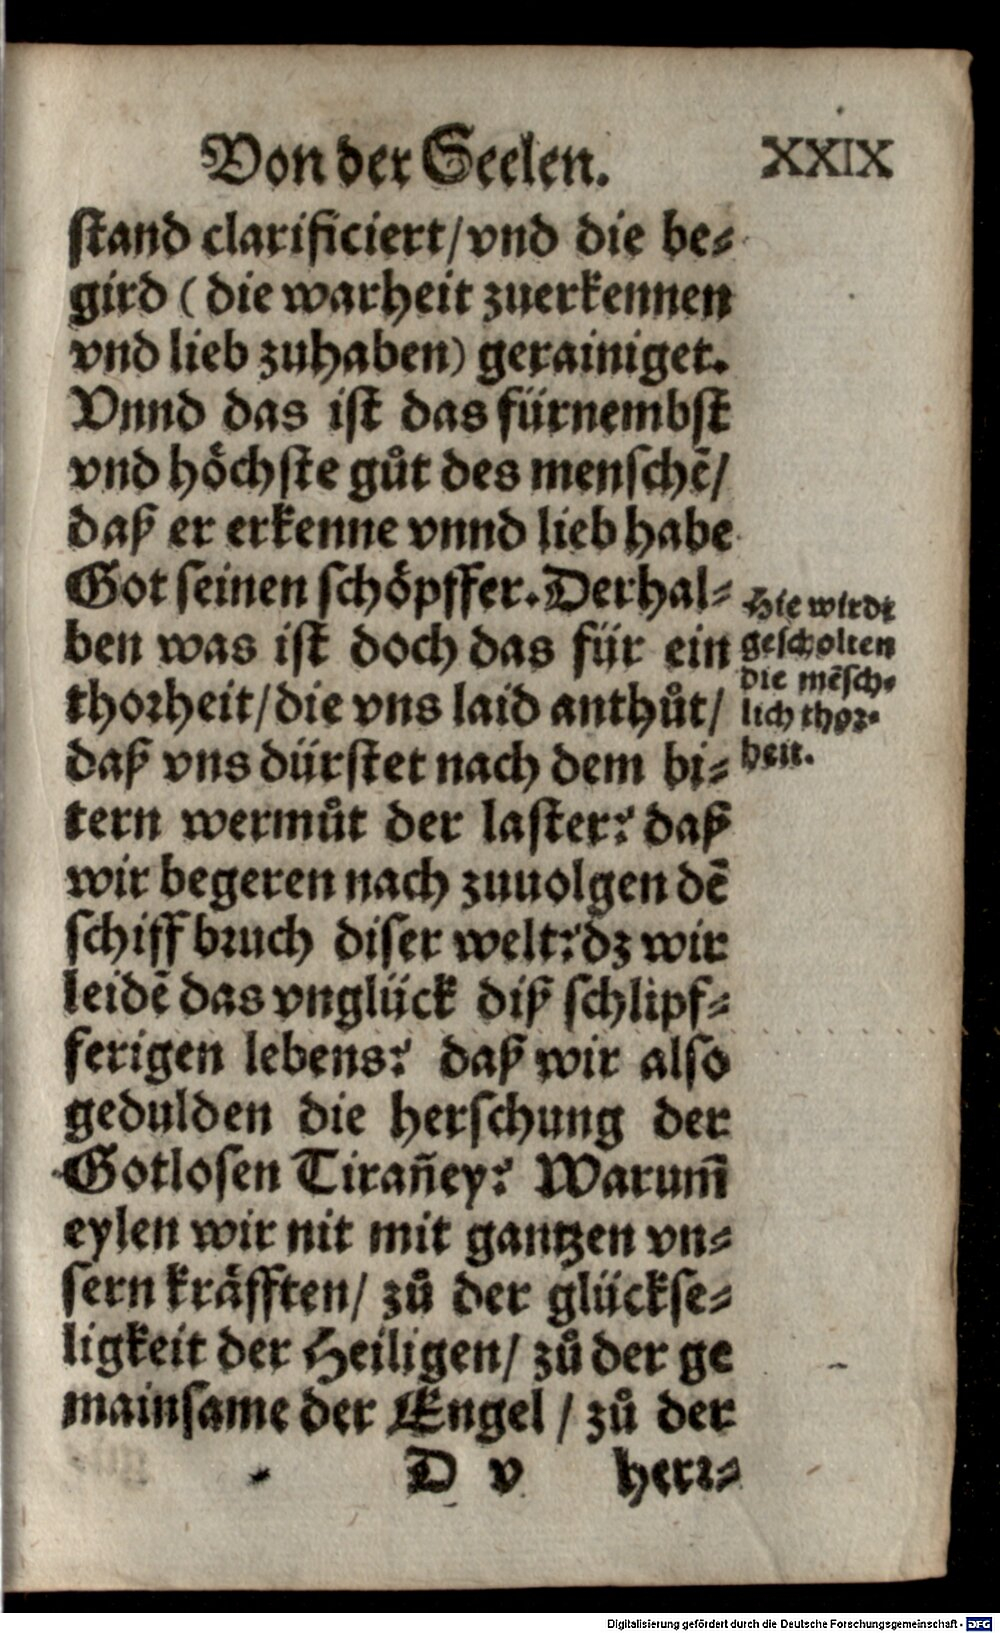 Von der Seelen. XXIX
stand clarificiert/vnd die be-
gird (die warheit zuerkennen
vnd lieb zuhaben) gerainiget.
Vnnd das ist das fürnembst
vnd höchste gůt des menschē/
daß er erkenne vnnd lieb habe
Got seinen schöpffer. Derhal-
ben was ist doch das für ein
thorheit/die vns laid anthůt/
daß vns dürstet nach dem bi-
tern wermůt der laster? daß
wir begeren nach zuuolgen dē
schiffbruch diser welt? dz wir
leidē das vnglück diß schlipf-
ferigen lebens? daß wir also
gedulden die herschung der
Gotlosen Tirañey? Warum̃
eylen wir nit mit gantzen vn-
sern kräfften/ zů der glückse-
ligkeit der Heiligen/ zů der ge
mainsame der Engel / zů der
D v herr-
Hie wirdt
gescholten
die mēsch-
lich thor-
heit.
Digitalisierung gefördert durch die Deutsche Forschungsgemeinschaft - DFG